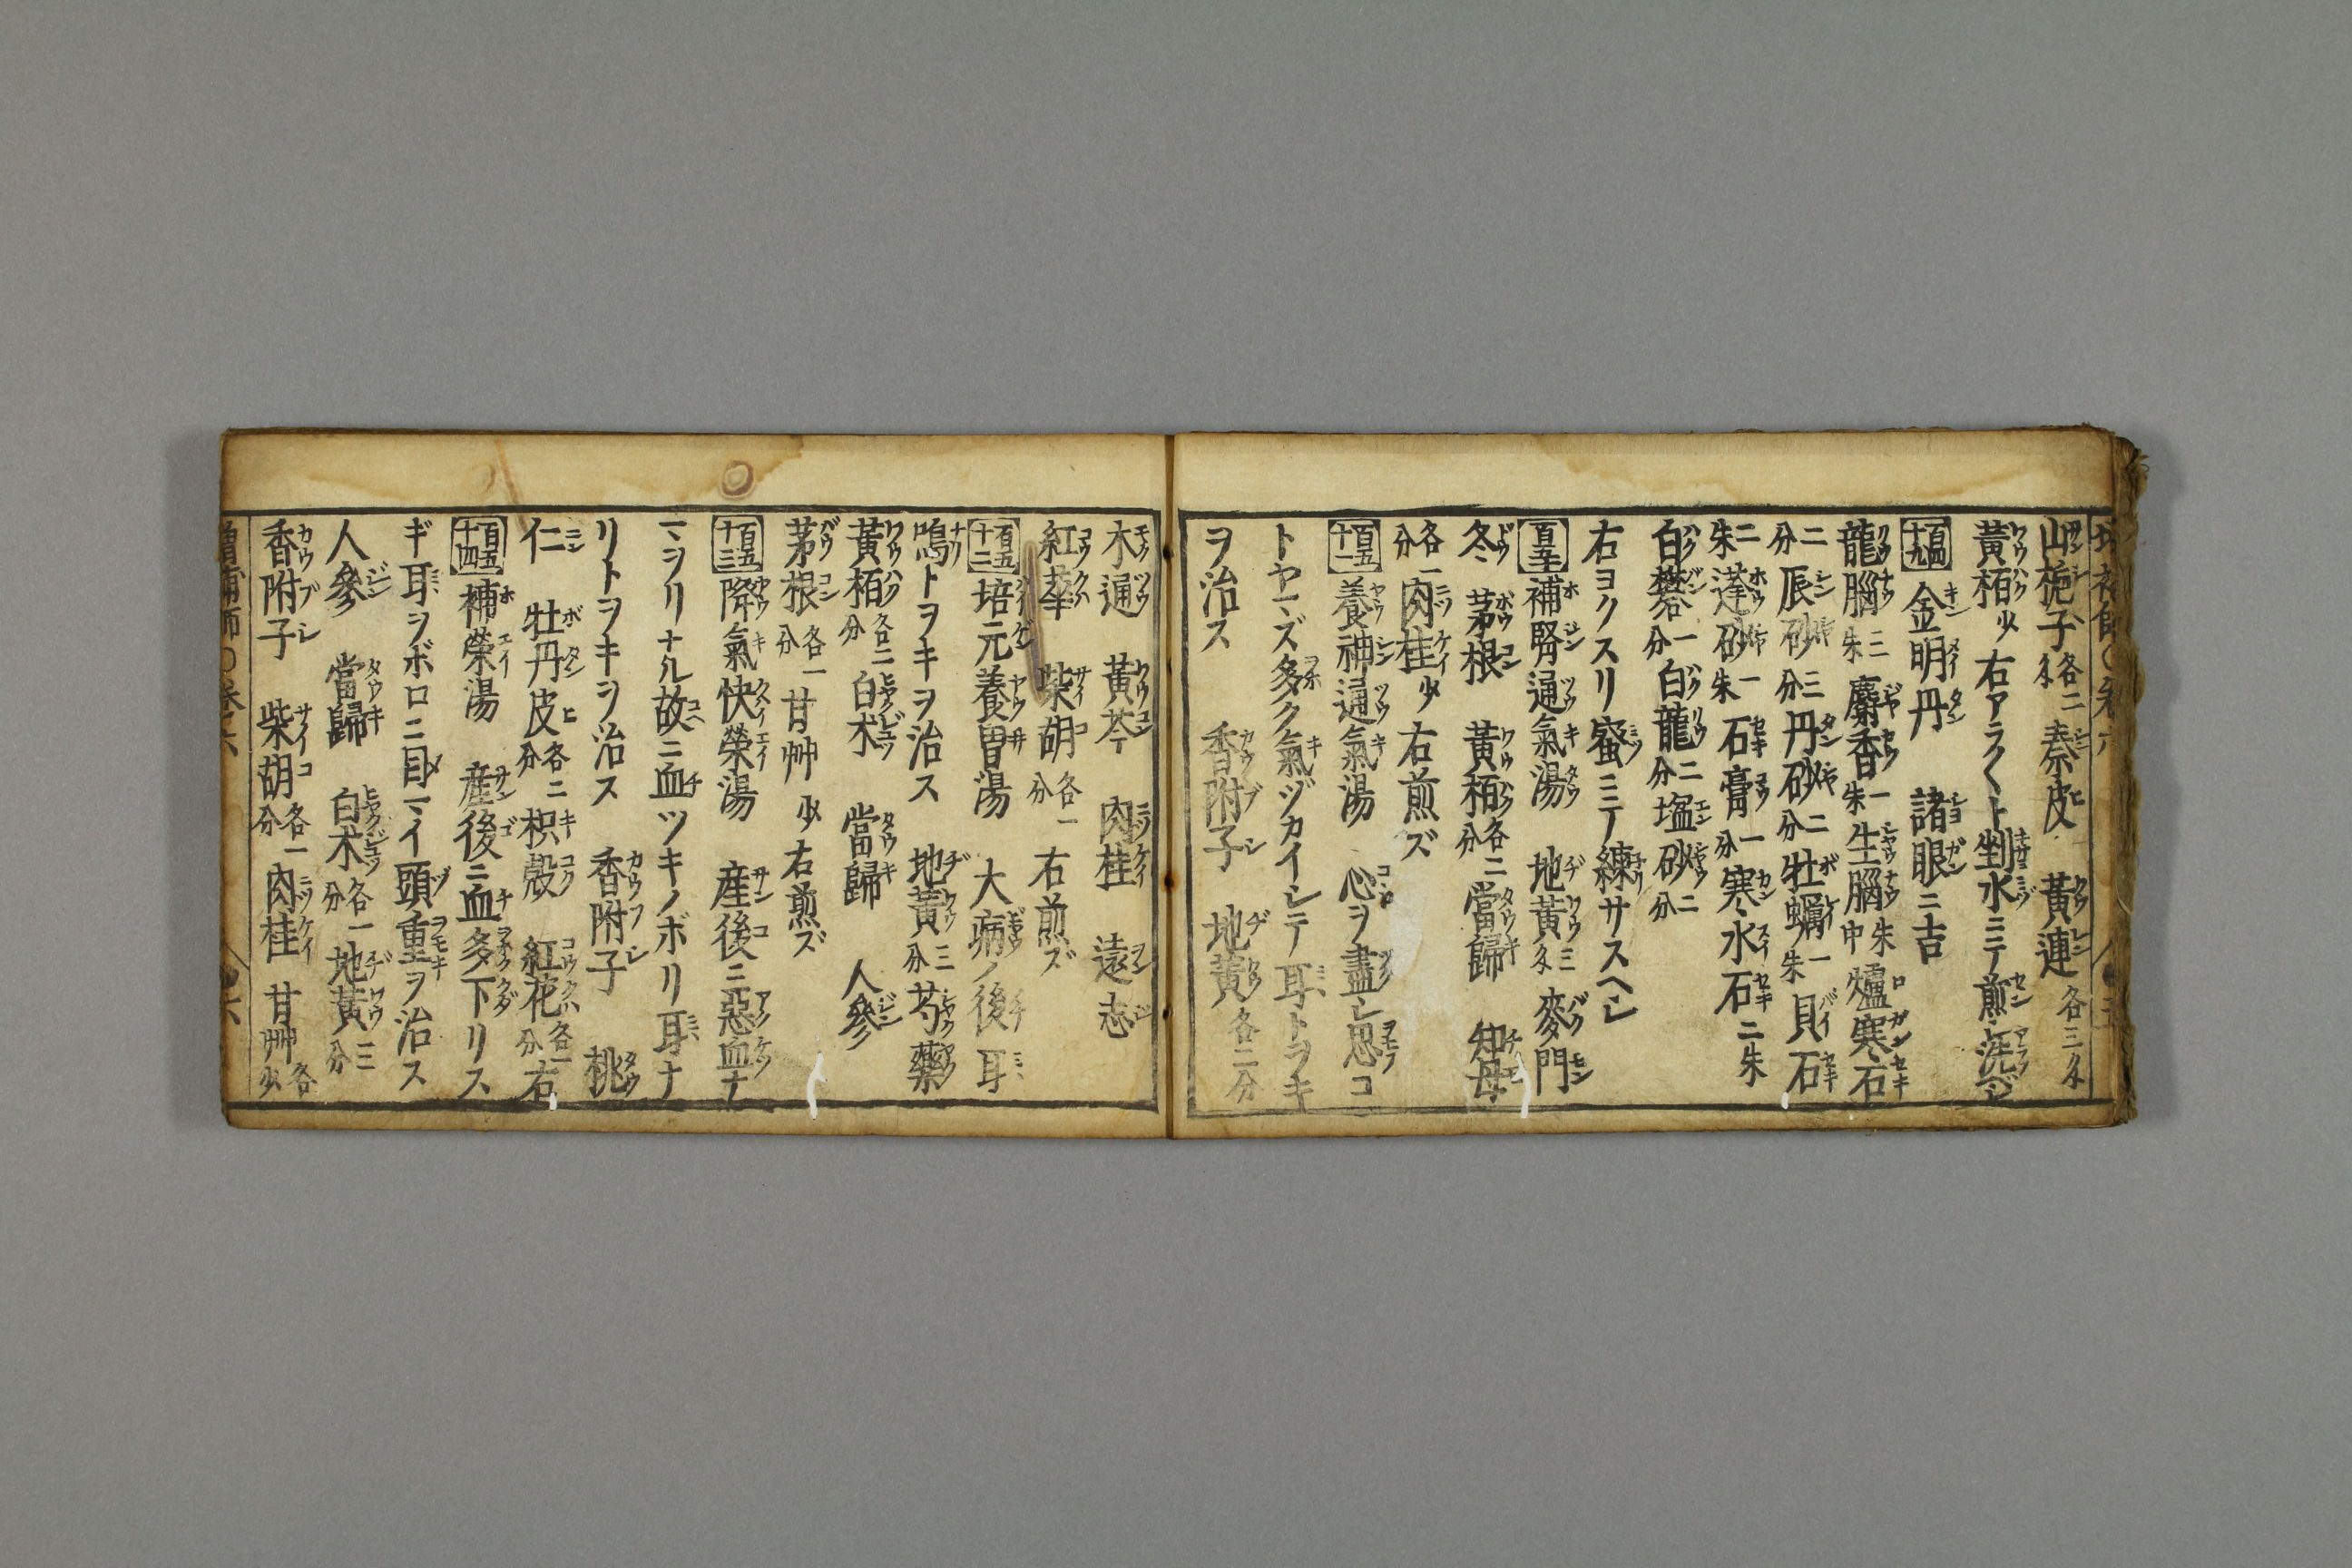 山梔子各二匁 秦皮 黄連各三匁
黄栢少 右アラ〱ト剉水ニテ煎ジ洗ベシ
百四十九 金明丹 諸眼ニ吉
龍腦三朱 麝香一朱 生腦中朱 爐寒石
二分 辰砂三分 丹砂二分 牡蠣一朱 貝石
二朱 蓬砂一朱 石膏一分 寒水石二朱
白礬一分 白龍二分 塩砂二分
右ヨクスリ蜜ニテ練サスヘシ
百五十 補腎通氣湯 地黄三匁 麥門
冬 茅根 黄栢各二分 當歸 知母
各一分 肉桂少 右煎ズ
百五十一 養神通氣湯 心ヲ盡シ思コ
トヤマズ多ク氣ヅカイシテ耳トヲキ
ヲ治ス 香附子 地黄各二分
木通 黄芩 肉桂 遠志
紅華 柴胡各一分 右煎ズ
百五十二 培元養胃湯 大病ノ後耳
鳴トヲキヲ治ス 地黄三分 芍藥
黄栢各二分 白朮 當歸 人參
茅根各一分 甘艸少 右煎ズ
百五十三 降氣快榮湯 産後ニ惡血ナ
マヲリナル故ニ血ツキノボリ耳ナ
リトヲキヲ治ス 香附子 桃
仁 牡丹皮各二分 枳殻 紅花各一分 右
百五十四 補榮湯 産後ニ血多下リス
ギ耳ヲボロニ目マイ頭重ヲ治ス
人參 當歸 白朮各一分 地黄三分
香附子 柴胡各一分 肉桂 甘艸各少